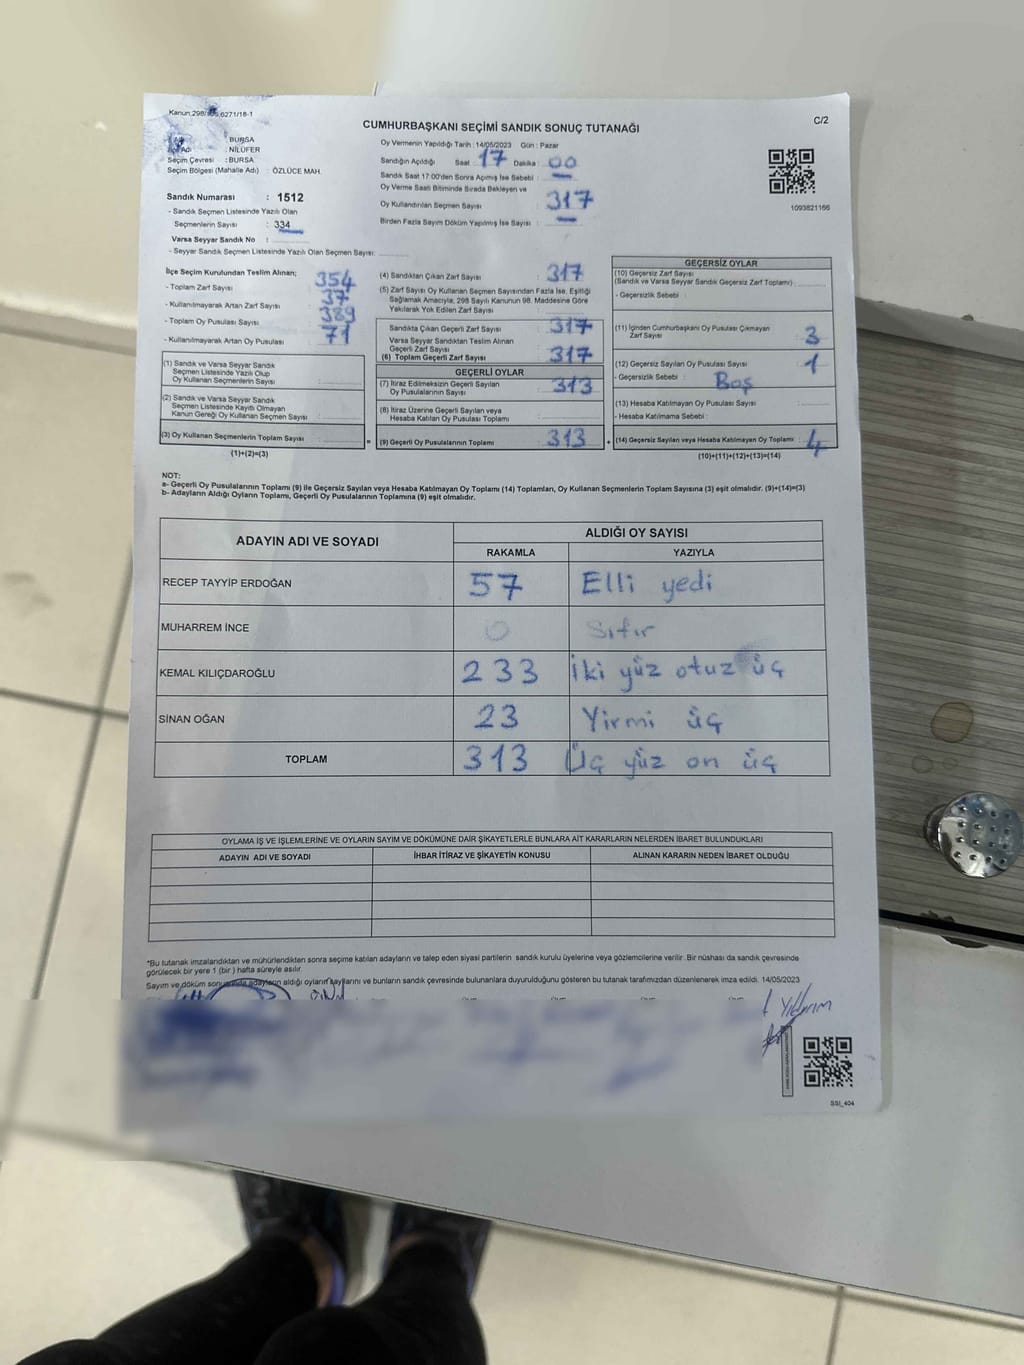 Kanun:298/ 6271/18-1
CUMHURBAŞKANI SEÇİMİ SANDIK SONUÇ TUTANAĞI
C/2
: BURSA
: NİLÜFER
Seçim Çevresi : BURSA
Seçim Bölgesi (Mahalle Adı) : ÖZLÜCE MAH.
Sandık Numarası : 1512
- Sandık Seçmen Listesinde Yazılı Olan
Seçmenlerin Sayısı : 334
Varsa Seyyar Sandık No :
- Seyyar Sandık Seçmen Listesinde Yazılı Olan Seçmen Sayısı:
Oy Vermenin Yapıldığı Tarih : 14/05/2023 Gün : Pazar
Sandığın Açıldığı Saat : 17 Dakika : 00
Sandık Saat 17:00'den Sonra Açımış İse Sebebi : —
Oy Verme Saati Bitiminde Sırada Bekleyen ve
Oy Kullandırılan Seçmen Sayısı : 317
Birden Fazla Sayım Döküm Yapılmış İse Sayısı : —
1093821166
İlçe Seçim Kurulundan Teslim Alınan;
- Toplam Zarf Sayısı : 354
- Kullanılmayarak Artan Zarf Sayısı : 37
- Toplam Oy Pusulası Sayısı : 389
- Kullanılmayarak Artan Oy Pusulası : 71
(1) Sandık ve Varsa Seyyar Sandık
Seçmen Listesinde Yazılı Olup
Oy Kullanan Seçmenlerin Sayısı :
(2) Sandık ve Varsa Seyyar Sandık
Seçmen Listesinde Kayıtlı Olmayan
Kanun Gereği Oy Kullanan Seçmen Sayısı :
(3) Oy Kullanan Seçmenlerin Toplam Sayısı :
(1)+(2)=(3)
(4) Sandıktan Çıkan Zarf Sayısı : 317
(5) Zarf Sayısı Oy Kullanan Seçmen Sayısından Fazla İse, Eşitliği
Sağlamak Amacıyla, 298 Sayılı Kanunun 98. Maddesine Göre
Yakılarak Yok Edilen Zarf Sayısı :
Sandıkta Çıkan Geçerli Zarf Sayısı : 317
Varsa Seyyar Sandıktan Teslim Alınan
Geçerli Zarf Sayısı :
(6) Toplam Geçerli Zarf Sayısı : 317
GEÇERLİ OYLAR
(7) İtiraz Edilmeksizin Geçerli Sayılan
Oy Pusulalarının Sayısı : 313
(8) İtiraz Üzerine Geçerli Sayılan veya
Hesaba Katılan Oy Pusulası Toplamı :
= (9) Geçerli Oy Pusulalarının Toplamı : 313 +
GEÇERSİZ OYLAR
(10) Geçersiz Zarf Sayısı
(Sandık ve Varsa Seyyar Sandık Geçersiz Zarf Toplamı) :
- Geçersizlik Sebebi :
(11) İçinden Cumhurbaşkanı Oy Pusulası Çıkmayan
Zarf Sayısı : 3
(12) Geçersiz Sayılan Oy Pusulası Sayısı : 1
- Geçersizlik Sebebi : Boş
(13) Hesaba Katılmayan Oy Pusulası Sayısı :
- Hesaba Katılmama Sebebi :
(14) Geçersiz Sayılan veya Hesaba Katılmayan Oy Toplamı : 4
(10)+(11)+(12)+(13)=(14)
NOT:
a- Geçerli Oy Pusulalarının Toplamı (9) ile Geçersiz Sayılan veya Hesaba Katılmayan Oy Toplamı (14) Toplamları, Oy Kullanan Seçmenlerin Toplam Sayısına (3) eşit olmalıdır. (9)+(14)=(3)
b- Adayların Aldığı Oyların Toplamı, Geçerli Oy Pusulalarının Toplamına (9) eşit olmalıdır.
ADAYIN ADI VE SOYADI
ALDIĞI OY SAYISI
RAKAMLA YAZIYLA
RECEP TAYYİP ERDOĞAN 57 Elli yedi
MUHARREM İNCE 0 Sıfır
KEMAL KILIÇDAROĞLU 233 İki yüz otuz üç
SİNAN OĞAN 23 Yirmi üç
TOPLAM 313 Üç yüz on üç
OYLAMA İŞ VE İŞLEMLERİNE VE OYLARIN SAYIM VE DÖKÜMÜNE DAİR ŞİKAYETLERLE BUNLARA AİT KARARLARIN NELERDEN İBARET BULUNDUKLARI
ADAYIN ADI VE SOYADI İHBAR İTİRAZ VE ŞİKAYETİN KONUSU ALINAN KARARIN NEDEN İBARET OLDUĞU
*Bu tutanak imzalandıktan ve mühürlendikten sonra seçime katılan adayların ve talep eden siyasi partilerin sandık kurulu üyelerine veya gözlemcilerine verilir. Bir nüshası da sandık çevresinde
görülecek bir yere 1 (bir ) hafta süreyle asılır.
Sayım ve döküm sonucunda adayların aldığı oyların sayılarını ve bunların sandık çevresinde bulunanlara duyurulduğunu gösteren bu tutanak tarafımızdan düzenlenerek imza edildi. 14/05/2023
Yıldırım
SSI_404